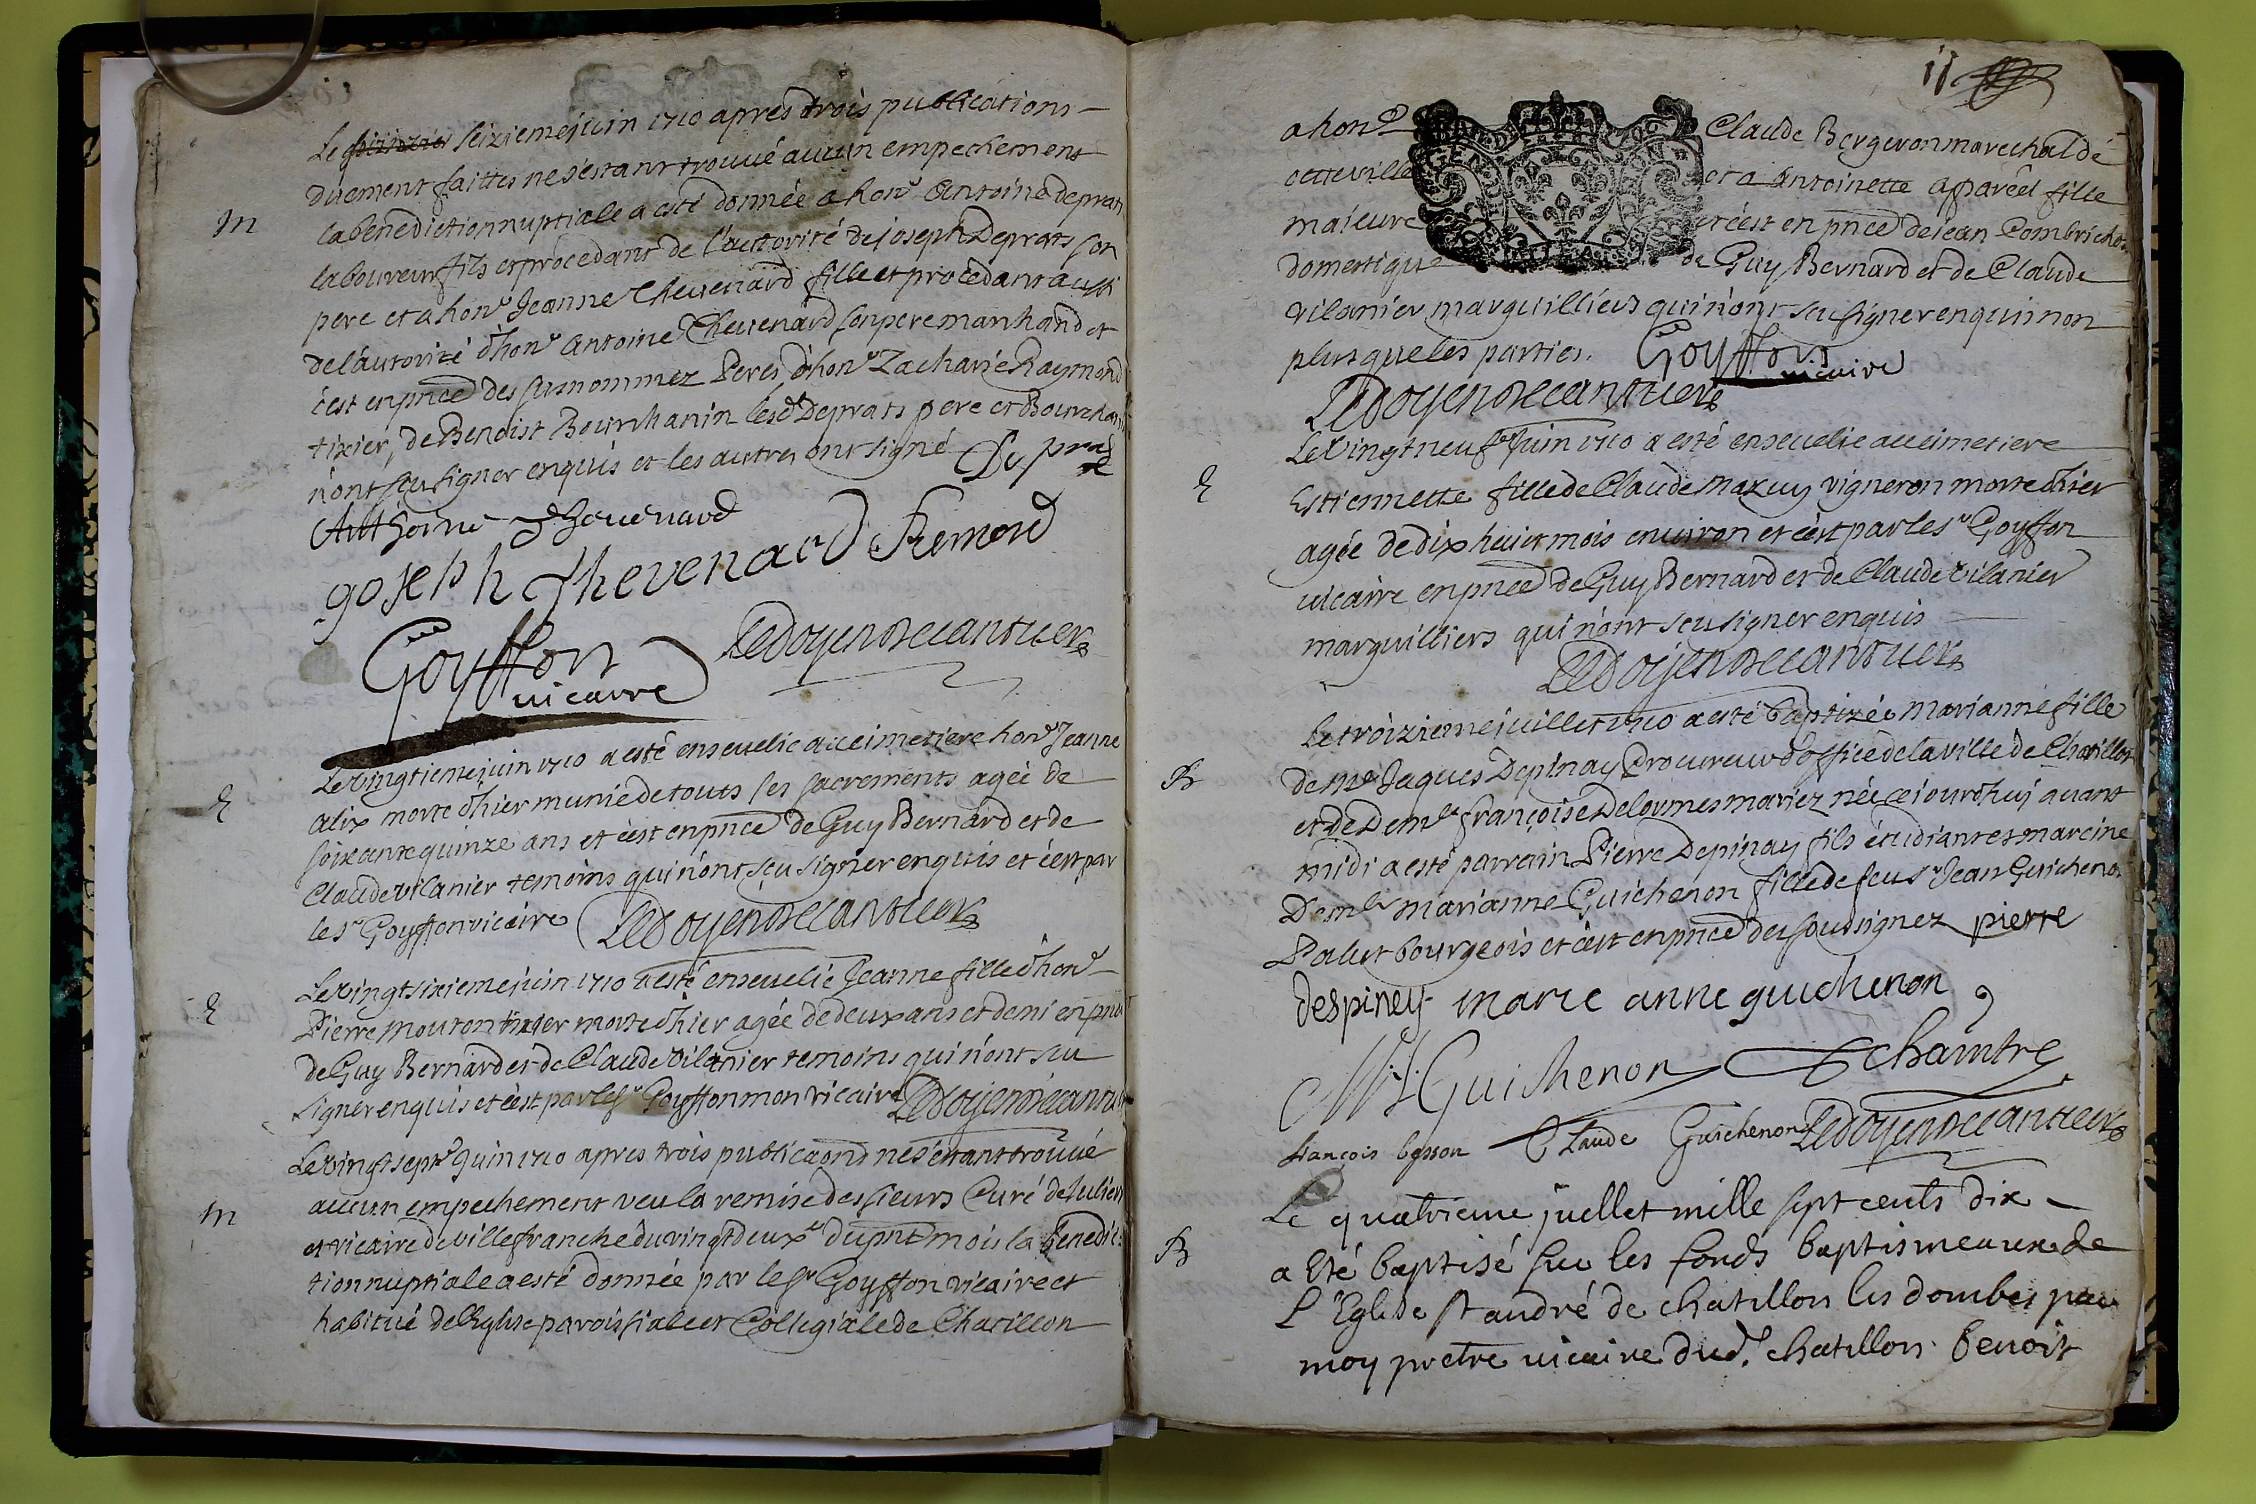 Le seizieme juin 1710 apres trois publications
duement faittes ne s'estant trouvé aucun empechement
M
la benediction nuptiale a esté donnée a hon.e Antoine deprats
laboureur fils et procedant de l'autorité de joseph Deprats son
pere et a hon.e Jeanne Chevenard fille et procedant aussi
de l'autorité d'hon.e Antoine Chevenard son pere marchand et
c'est en pnce des susnommez Peres, d'hon.e Zacharie Raymond
tixier, de Benoist Bourchanin lesd. Deprats pere et Bourchanin
n'ont sçu signer enquis et les autres ont signé Depras
Anthoine Chevenard
Joseph Thevenard Remond
Goyffon
vicaire
Ledoyendecantuers
Le vingtieme juin 1710 a esté ensevelie au cimetiere hon.e Jeanne
E
alix morte d'hier munie de touts ses sacrements agée de
soixante quinze ans et c'est en pnce de Guy Bernard et de
Claude vilanier temoins qui n'ont sçu signer enquis et c'est par
le s.r Goyffon vicaire Ledoyendecantuers
Le vingt sixieme juin 1710 a esté ensevelie Jeanne fille d'hon.e
E
Pierre mouton tixier morte d'hier agée de deux ans et demi en pnce
de Guy Bernard et de Claude vilanier temoins qui n'ont sceu
signer enquis et c'est par le s.r Goyffon mon vicaire Ledoyendecantuers
Le vingt sept.e Juin 1710 apres trois publicaons ne s'étant trouvé
aucun empechement veu la remise des sieurs Curé de Julien
M
et vicaire de villefranche du vingt deux.e du pnt mois la benedic
tion nuptiale a esté donnée par le s.r Goyffon vicaire et
habitué de l'Eglise paroissiale et Collegiale de Chatillon
11
a hon.e Claude Bergeron marechal de
cette ville et a Antoinette apareil fille
maieure et c'est en pnce de jean Combrichon
domestique de Guy Bernard et de Claude
vilanier marguilliers qui n'ont sçu signer enquis non
plus que les parties. Goyffon
vicaire
Ledoyendecantuers
Le vingt neuf.e Juin 1710 a esté ensevelie au cimetiere
E
Estiennette fille de Claude Mazuy vigneron morte d'hier
agée de dix huict mois environ et c'est par le s.r Goyffon
vicaire en pnce de Guy Bernard et de Claude vilanier
marguilliers qui n'ont sceu signer enquis
Ledoyendecantuers
Le troizieme juillet 1710 a esté baptizée marianne fille
B
de M.e Jaques Depinay Procureur d'office de la ville de Chatillon
et de Dem.lle françoise Delormes mariez née ce jourd'huy avant
midi a esté parrain Pierre Depinay fils étudiant et marrine
Dem.lle marianne Guichenon fille de feu s.r Jean Guichenon
Palut bourgeois et c'est en pnce des soussignez pierre
despiney marie anne guichenon
Guichenon chaintre
françois besson Claude Guichenon Ledoyendecantuers
Le quatrieme juellet mille sept cents dix
B
a eté baptisé sur les fonds baptismeaux de
l'Eglise st andré de chatillon les dombes par
moy pretre vicaire dud. chatillon benoit